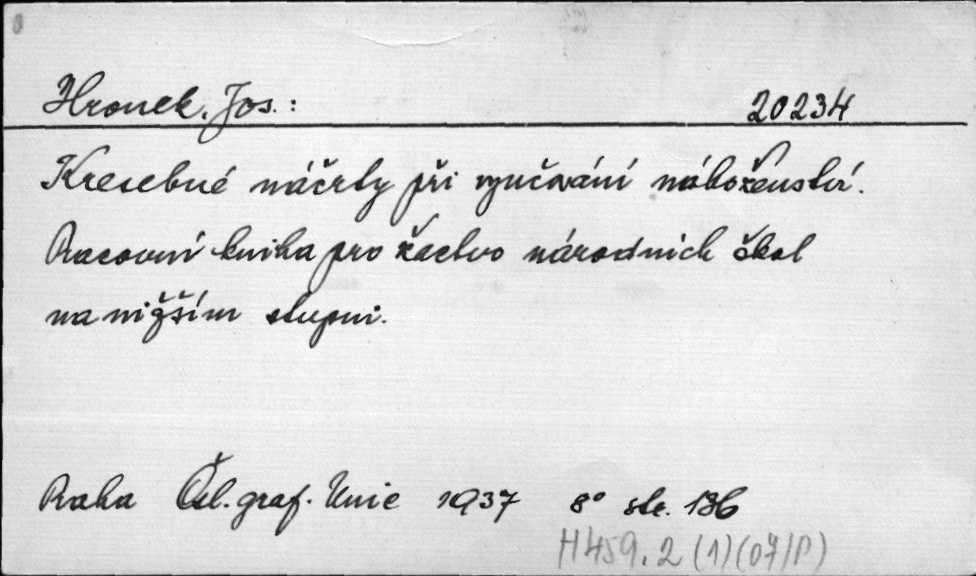 Hronek, Jos.: 20234
Kresebné náčrty při vyučování náboženství.
Pracovní kniha pro žactvo národních škol
na nižším stupni.
Praha Čsl. graf. Unie 1937 8° str. 136
H 459.2 (1)(07/P)